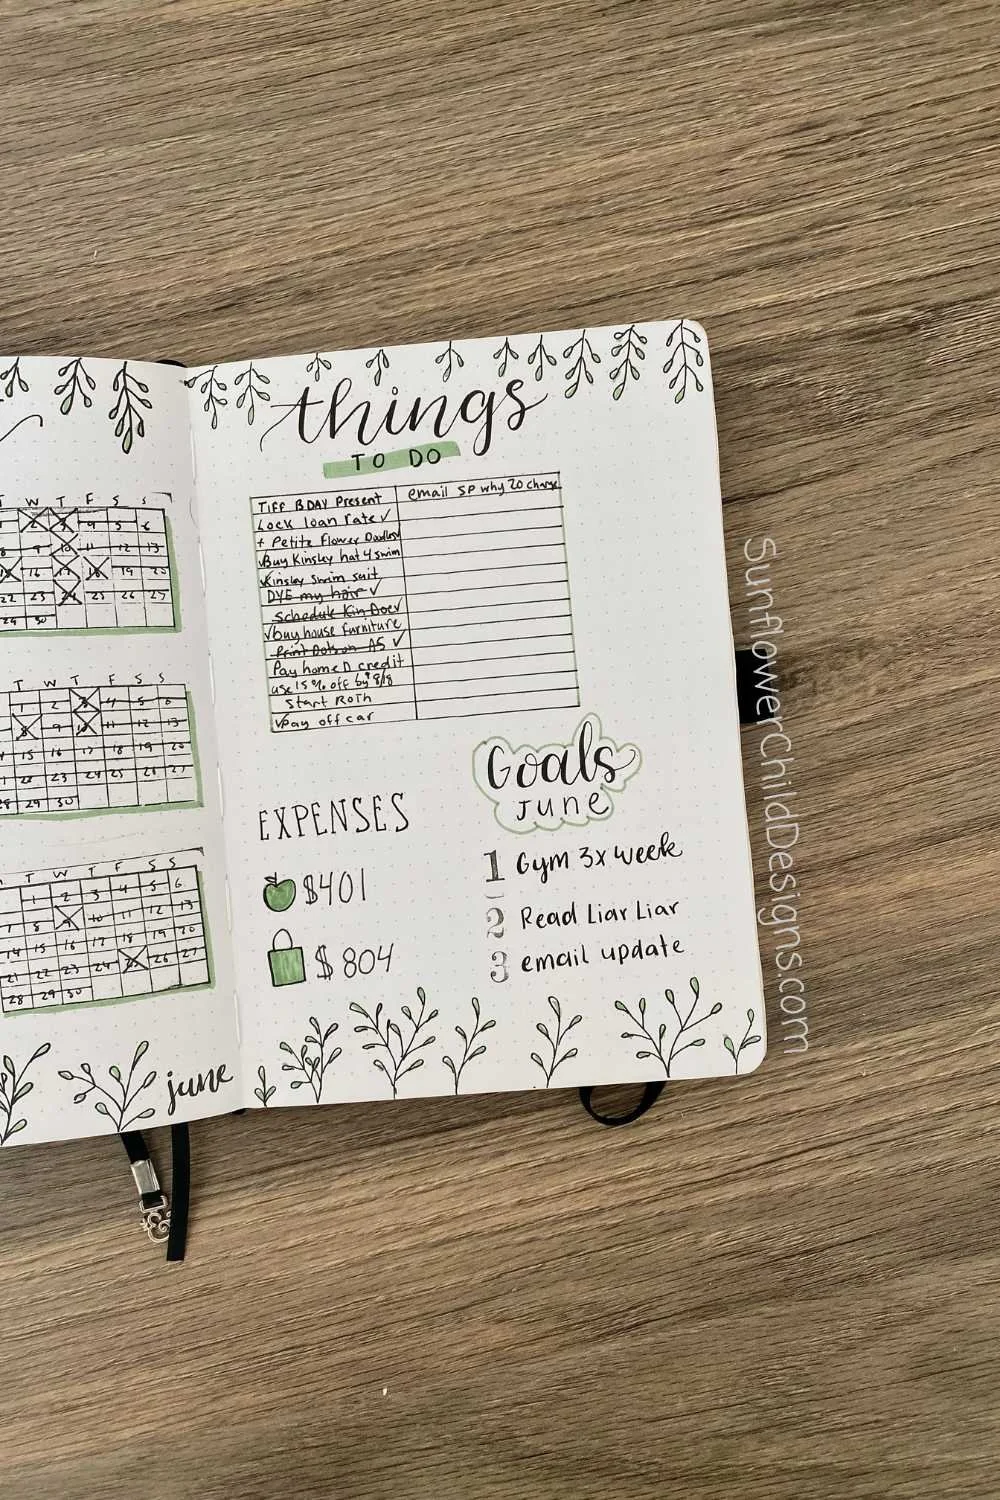 T W T F S S
2 3 4 5 6
9 10 11 12 13
16 17 18 19 20
22 23 24 25 26 27
29 30
T W T F S S
1 2 3 4 5 6
8 9 10 11 12 13
15 16 17 18 19 20
22 23 24 25 26 27
28 29 30
T W T F S S
1 2 3 4 5 6
7 8 9 10 11 12 13
14 15 16 17 18 19 20
21 22 23 24 25 26 27
28 29 30
june
things
TO DO
Tiff BDAY Present
Lock loan rate ✓
+ Petite Flower Doodles
✓Buy Kinsley hat 4 swim
✓Kinsley swim suit
DYE my hair ✓
Schedule Kin Doc ✓
✓buy house furniture
Print Dots on A5 ✓
Pay home D credit
use 15% off by 8/18
Start Roth
✓Pay off car
email SP why 20 charge
EXPENSES
$401
$804
Goals
June
1 Gym 3x week
2 Read Liar Liar
3 email update
SunflowerChildDesigns.com